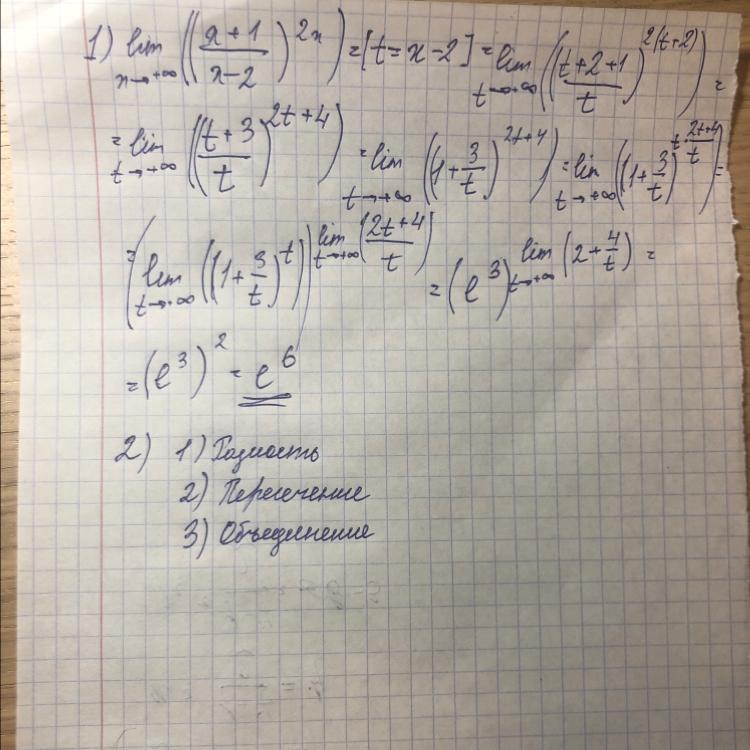 1) lim x→+∞ (((x+1)/(x-2))^(2x)) = [t = x-2] = lim t→+∞ (((t+2+1)/t)^(2(t+2))) =
= lim t→+∞ (((t+3)/t)^(2t+4)) = lim t→+∞ ((1+3/t)^(2t+4)) = lim t→+∞ ((1+3/t)^(t·(2t+4)/t)) =
= (lim t→+∞ ((1+3/t)^t))^(lim t→+∞ ((2t+4)/t)) = (e^3)^(lim t→+∞ (2+4/t)) =
= (e^3)^2 = e^6
2) 1) Разность
2) Пересечение
3) Объединение